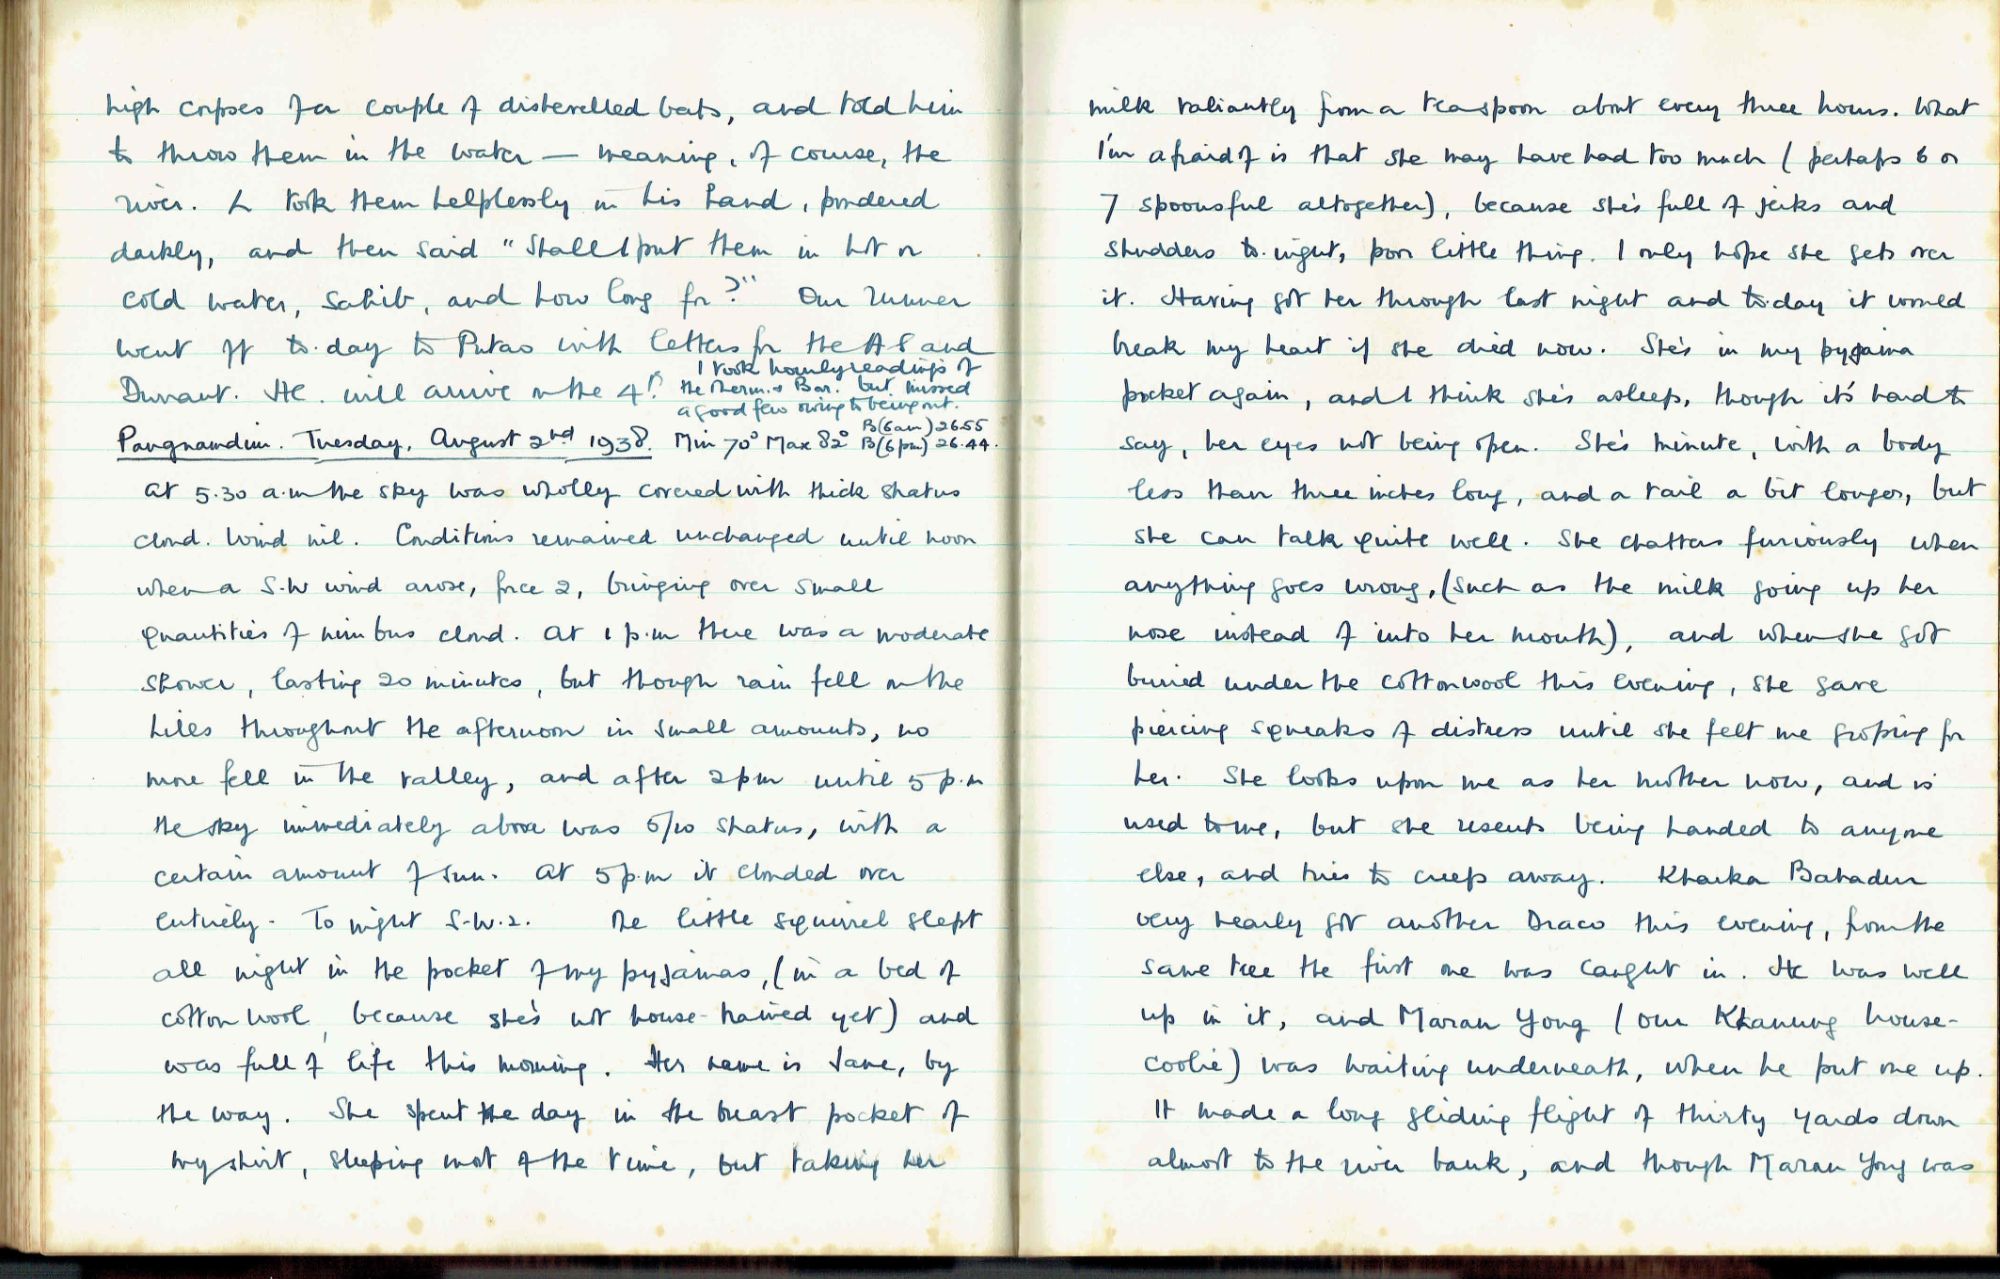 high corpses of a couple of dishevelled bats, and told him
to throw them in the water — meaning, of course, the
river. L took them helplessly in his hand, pondered
darkly, and then said "Shall I put them in hot or
cold water, Sahib, and how long for?" Our runner
went off to-day to Putao with letters for the A S and
Durrant. He will arrive on the 4th.
I took hourly readings of
the Therm. & Bar. but missed
a good few owing to being out.
Pangnamdim. Tuesday, August 2nd 1938. Min 70° Max 82° B(6am) 26.55
B(6pm) 26.44.
At 5.30 a.m the sky was wholly covered with thick stratus
cloud. Wind nil. Conditions remained unchanged until noon
when a S.W wind arose, force 2, bringing over small
quantities of nimbus cloud. At 1 p.m there was a moderate
shower, lasting 20 minutes, but though rain fell on the
hills throughout the afternoon in small amounts, no
more fell in the valley, and after 2 pm until 5 p.m
the sky immediately above was 6/10 stratus, with a
certain amount of sun. At 5 p.m it clouded over
entirely. To night S.W.2. The little squirrel slept
all night in the pocket of my pyjamas, (in a bed of
cotton wool, because she's not house-trained yet) and
was full of life this morning. Her name is Jane, by
the way. She spent the day in the breast pocket of
my shirt, sleeping most of the time, but taking her
milk valiantly from a teaspoon about every three hours. What
I'm afraid of is that she may have had too much (perhaps 6 or
7 spoonsful altogether), because she's full of jerks and
shudders to-night, poor little thing. I only hope she gets over
it. Having got her through last night and to-day it would
break my heart if she died now. She's in my pyjama
pocket again, and I think she's asleep, though it's hard to
say, her eyes not being open. She's minute, with a body
less than three inches long, and a tail a bit longer, but
she can talk quite well. She chatters furiously when
anything goes wrong, (such as the milk going up her
nose instead of into her mouth), and when she got
buried under the cottonwool this evening, she gave
piercing squeaks of distress until she felt me groping for
her. She looks upon me as her mother now, and is
used to me, but she resents being handed to anyone
else, and tries to creep away. Kharka Bahadur
very nearly got another Draco this evening, from the
same tree the first one was caught in. He was well
up in it, and Maran Yong (our Khanung house-
coolie) was waiting underneath, when he put one up.
It made a long gliding flight of thirty yards down
almost to the river bank, and though Maran Yong was